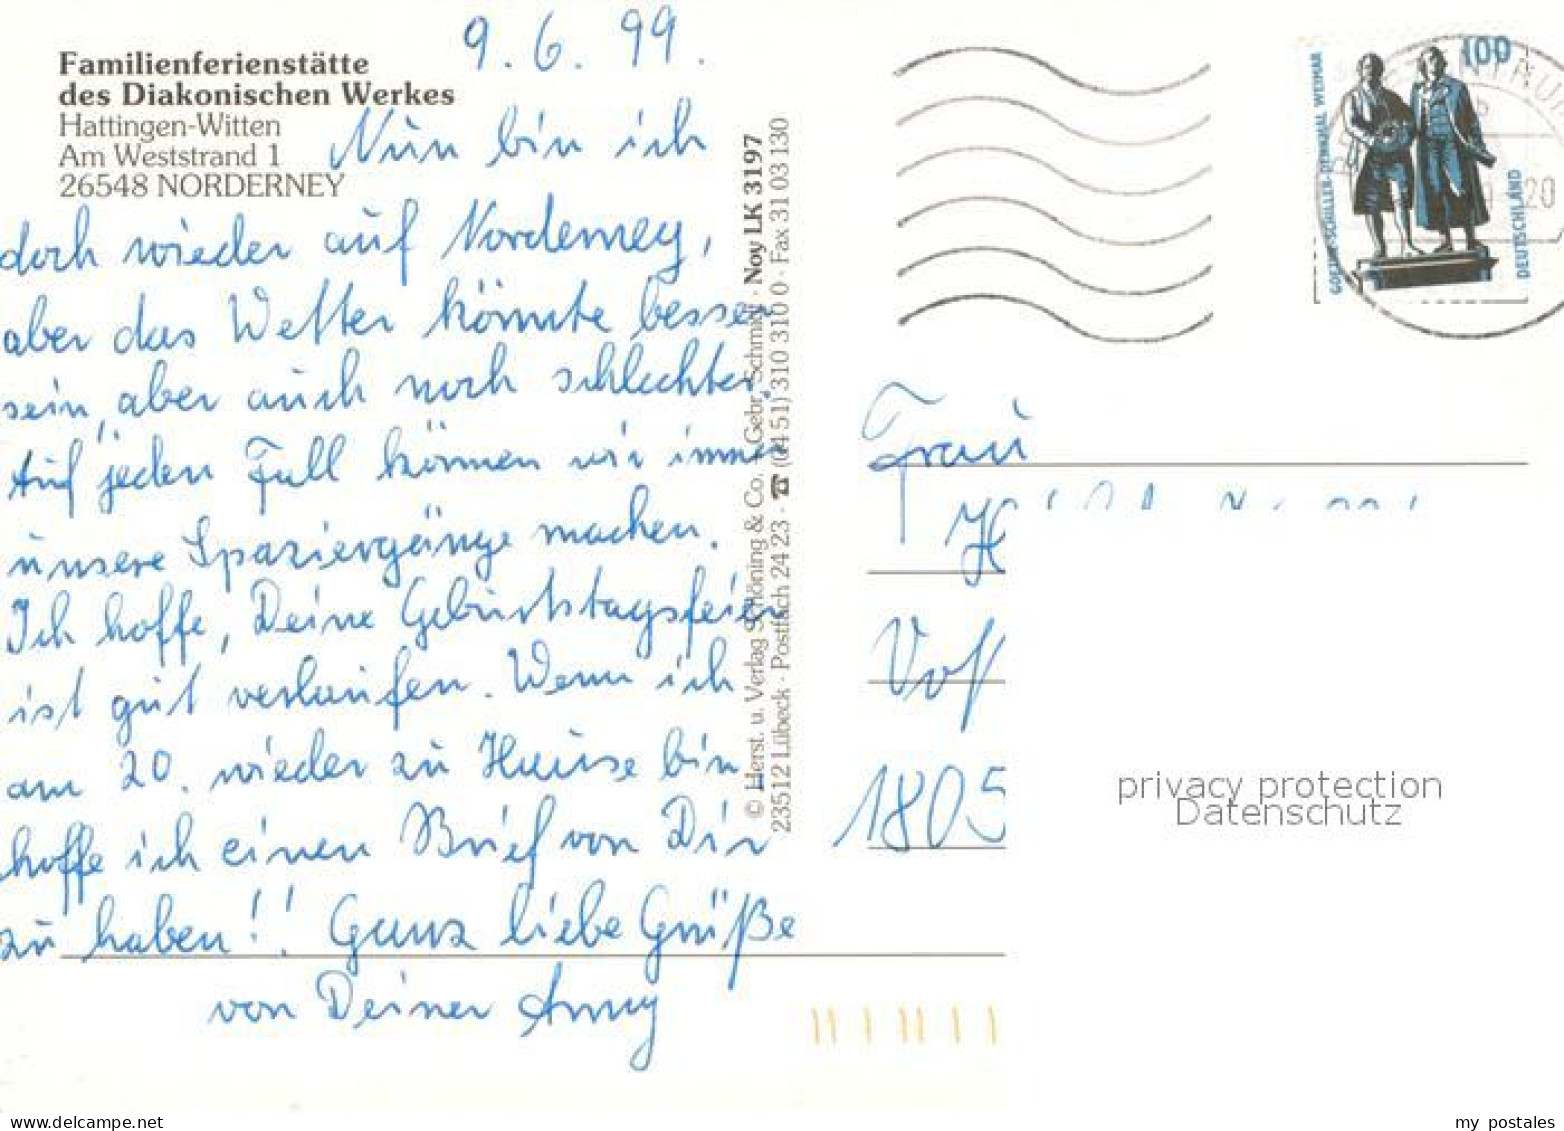 9. 6. 99.
Familienferienstätte
des Diakonischen Werkes
Hattingen-Witten
Am Weststrand 1
26548 NORDERNEY
Nun bin ich
doch wieder auf Norderney,
aber das Wetter könnte besser
sein, aber auch noch schlechter.
Auf jeden Fall können wir immer
unsere Spaziergänge machen.
Ich hoffe, Deine Geburtstagsfeier
ist gut verlaufen. Wenn ich
am 20. wieder zu Hause bin
hoffe ich einen Brief von Dir
zu haben!! Ganz liebe Grüße
von Deiner Anny
© Herst. u. Verlag Schöning & Co. + Gebr. Schmidt · Noy LK 3197
23512 Lübeck · Postfach 24 23 · ☎ (04 51) 310 310 0 · Fax 31 03 130
100
GOETHE-SCHILLER-DENKMAL WEIMAR
DEUTSCHLAND
Frau
H
Vo
1805
privacy protection
Datenschutz
www.delcampe.net
my_postales